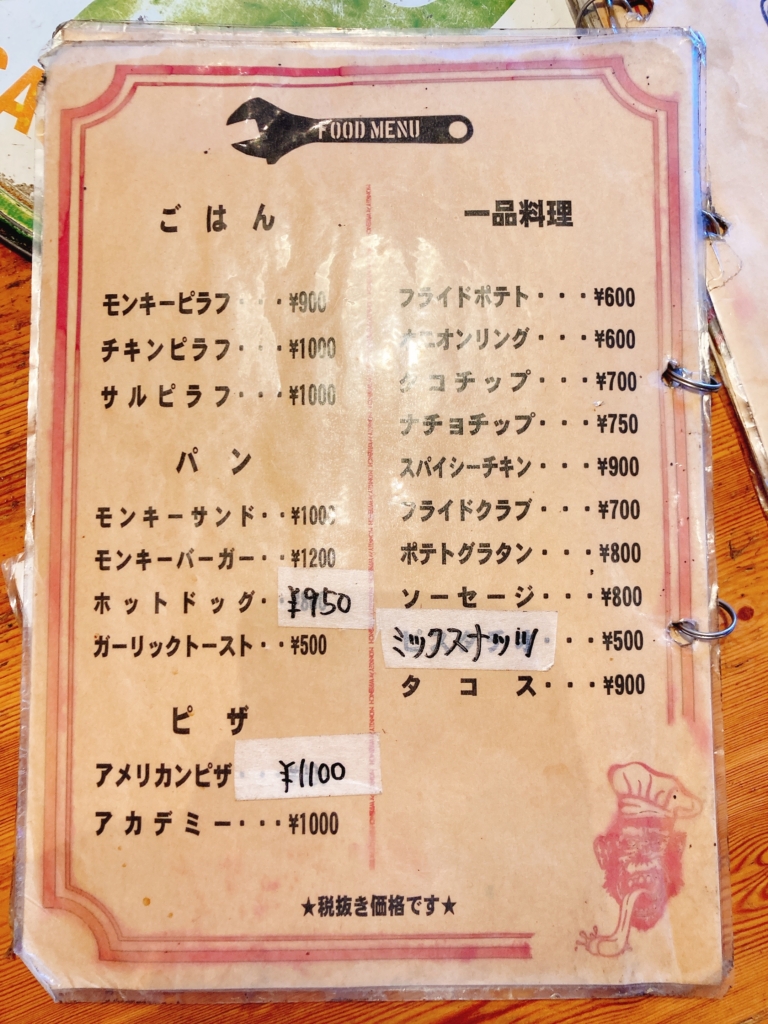 FOOD MENU
ごはん
モンキーピラフ・・・¥900
チキンピラフ・・・¥1000
サルピラフ・・・¥1000
パン
モンキーサンド・・¥1000
モンキーバーガー・・¥1200
ホットドッグ・¥950
ガーリックトースト・・¥500
ピザ
アメリカンピザ ¥1100
アカデミー・・・¥1000
一品料理
フライドポテト・・・¥600
オニオンリング・・・¥600
タコチップ・・・¥700
ナチョチップ・・・¥750
スパイシーチキン・・・¥900
フライドクラブ・・・¥700
ポテトグラタン・・・¥800
ソーセージ・・・¥800
ミックスナッツ・・・¥500
タコス・・・¥900
★税抜き価格です★